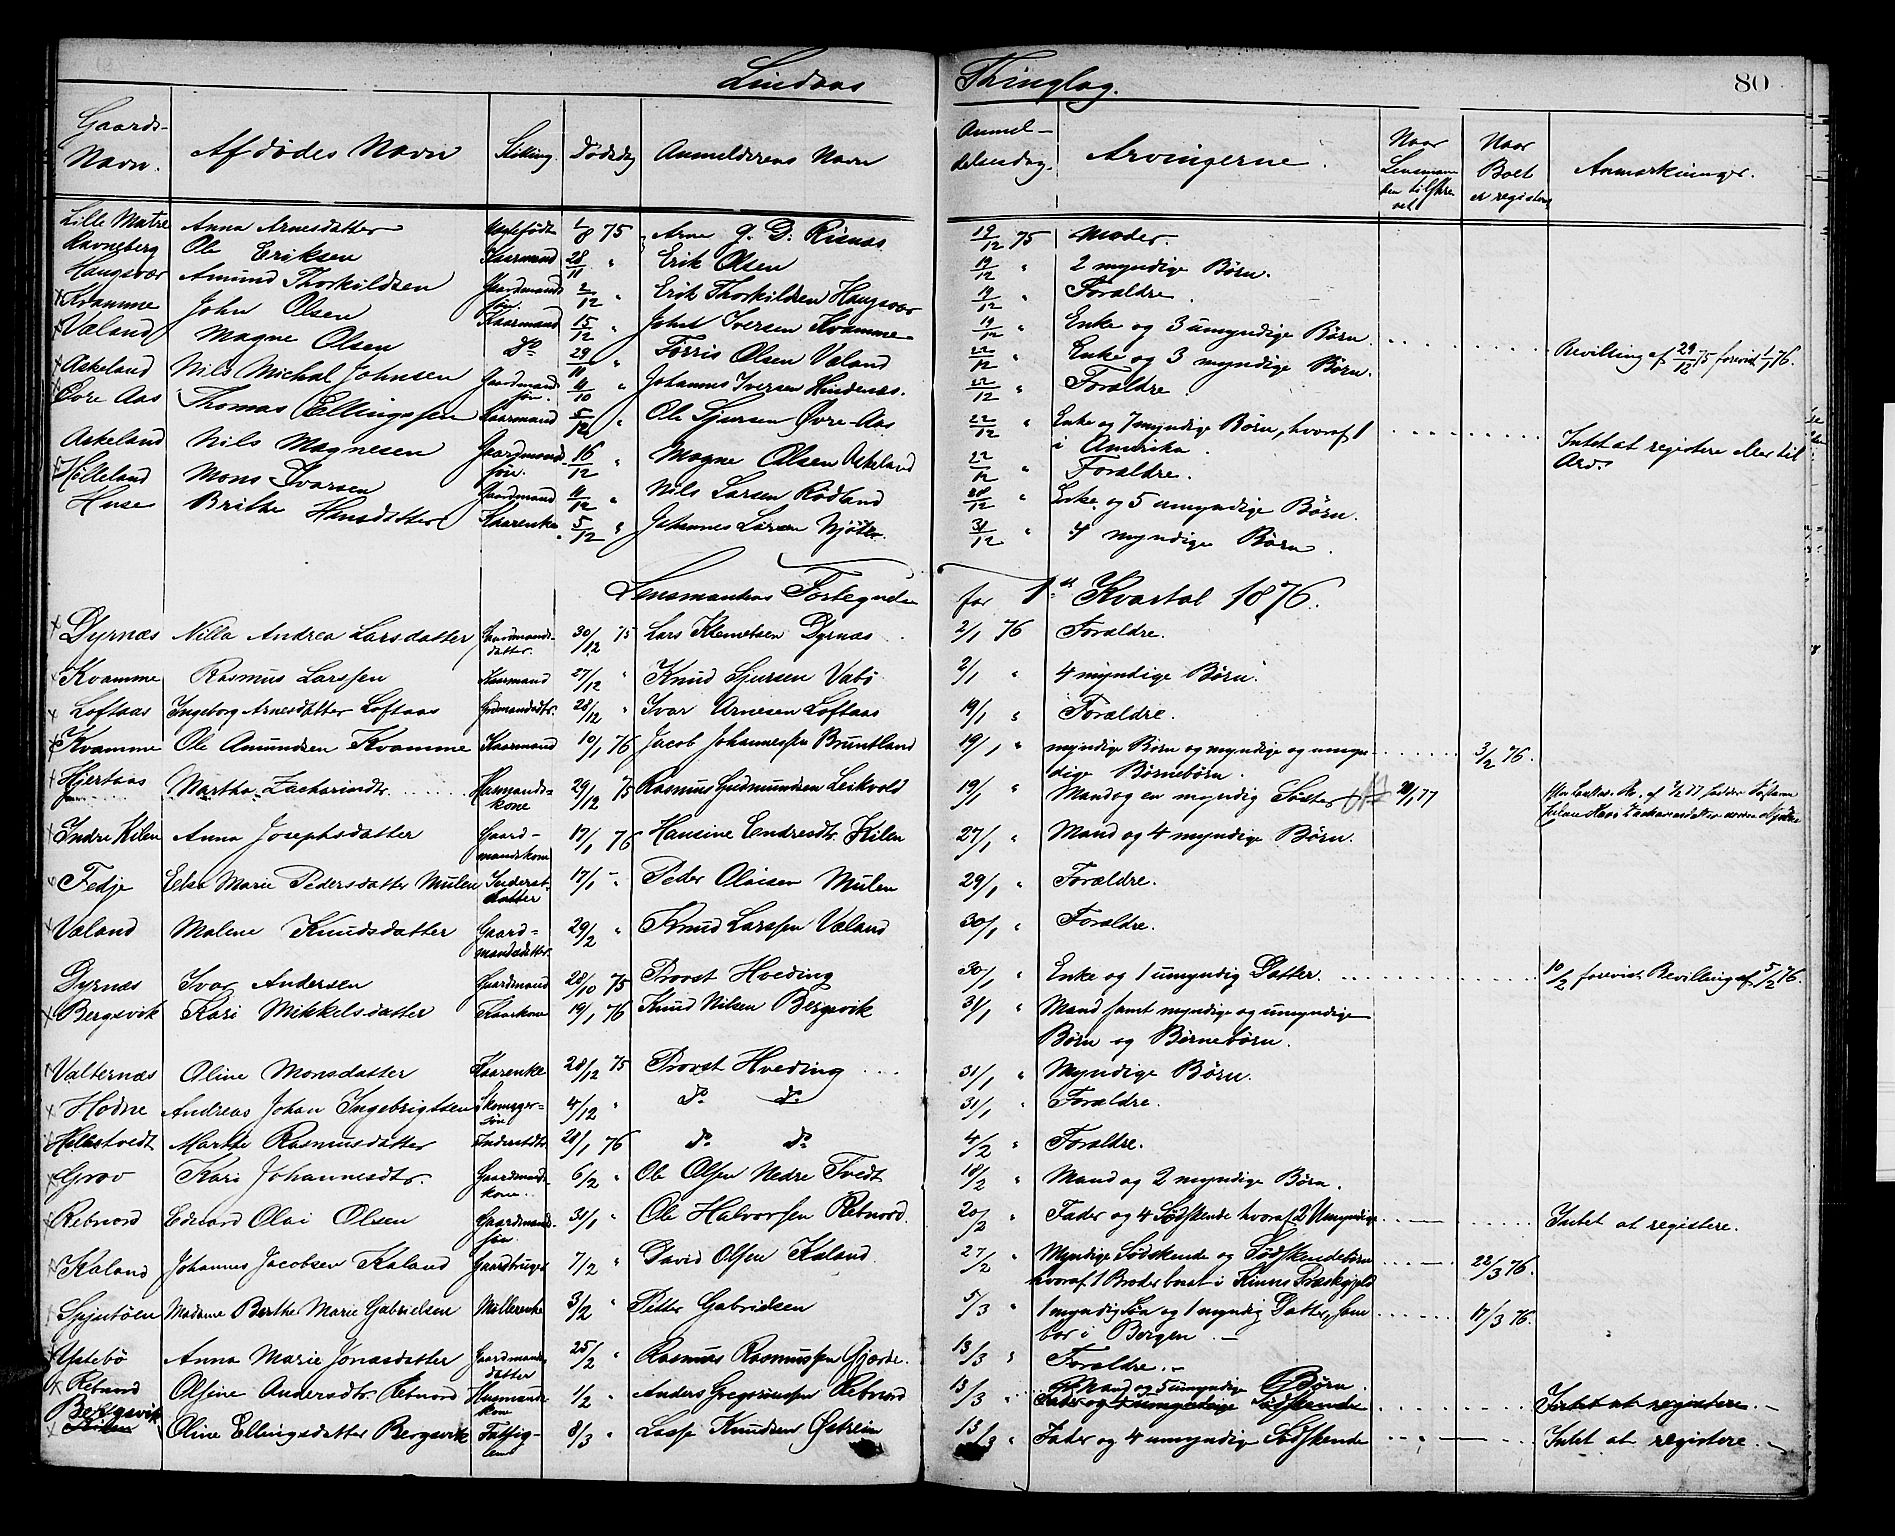 Lindaas Thinglag.
80
Gaards-Navn. Afdødes Navn Stilling Dødsdag Anmelderens Navn Anmeldelsesdag. Arvingerne. Naar Lensmanden tilskrevet Naar Boet er registere Anmærkninger.
Lille Matre Anna Arnesdatter 1/8 75 Arne G. D. Risnæs 19/12 75 Moder.
Ravneberg Ole Eriksen Kaarmand 28/11 " Erik Olsen 19/12 " 2 myndige Børn.
Haugsvær Amund Thorkildsen Gaardmands søn. 2/12 " Erik Thorkildsen Haugsvær 19/12 " Forældre.
x Kvamme John Olsen Kaarmand 15/12 " Johs Iversen Kvamme 19/12 " Enke og 3 umyndige Børn.
x Væland Magne Olsen do 29/11 " Førris Olsen Væland 22/12 " Enke og 3 myndige Børn. Bevilling af 29/12 75 forevist 1/1 76.
x Askeland Nils Michal Johnsen Gaardmands søn. 11/10 " Johannes Iversen Hindenæs. 22/12 " Forældre
x Øvre Aas Thomas Ellingssen Kaarmand 5/12 " Ole Sjursen Øvre-Aas 22/12 " Enke og 7 myndige Børn, hvoraf 1 i Amerika. Intet at registere eller til Arv.
Askeland Nils Magnesen Gaardmands søn. 16/12 " Magne Olsen Askeland 22/12 " Forældre.
x Hilleland Mons Ivarsen Gaardmand 11/12 " Nils Larsen Rødland 28/12 " Enke og 5 umyndige Børn.
Huse Brithe Hansdatter Kaarenke 5/12 " Johannes Larsen Njøten 31/12 " 4 myndige Børn.
Lensmandens Fortegnelse for 1st Kvartal 1876.
x Dyrnæs Nilla Andrea Larsdatter Gaardmands-datter. 30/12 75 Lars Klemetsen Dyrnæs 2/1 76 Forældre.
x Kvamme Rasmus Larssen Kaarmand 27/12 " Knud Sjursen Vabø 2/1 " 4 myndige Børn.
x Loftaas Ingeborg Arnesdatter Loftaas Grdmandsdtr. 28/12 " Ivar Arnesen Loftaas 19/1 " Forældre.
x Kvamme Ole Amundsen Kvamme Kaarmand 10/1 76 Jacob Johannessen Bruntland 19/1 " myndige Børn og myndige og umyndige Børnebørn. 3/2 76.
x Hjertaas Martha Zachariasdtr. Husmands-kone 29/12 75 Rasmus Gudmundsen Leikvold 19/1 " Mand og en myndig Søster 20/1 77
x Indre Kilen Anna Josephsdatter Gaard-mandskone 17/1 76 Hansine Endresdtr. Kilen 27/1 " Mand og 4 myndige Børn.
x Fedje Elsa Marie Pedersdatter Mulen Inderst-datter 17/1 " Peder Olaisen Mulen 29/1 " Forældre.
x Væland Malene Knudsdatter Gaard-mandsdatter 29/2 " Knud Larssen Væland 30/1 " Forældre.
Dyrnæs Ivar Andersen Gaardmand 28/10 75 Provst Hveding 30/1 " Enke og 1 umyndig Datter. 10/2 forevist Bevilling af 5/2 76.
x Bergsvik Kari Mikkelsdatter Kaarkone 19/1 76 Knud Nilsen Bergsvik 31/1 " Mand samt myndige og umyndige Børn og Børnebørn.
x Valternæs Oline Monsdatter Kaarenke 28/12 75 Provst Hveding 31/1 " Myndige Børn.
x Hodne Andreas Johan Ingebrigtsen Skomager-søn 4/12 " do do 31/1 " Forældre.
x Helestvedt Marthe Rasmusdatter Inderstdtr 28/1 76 do do 4/2 " Forældre.
x Grov Kari Johannesdtr. Gaardmands-kone. 6/2 " Ole Olsen Nedre Tvedt 18/2 " Mand og 2 myndige Børn.
x Rebnord Edvard Olai Olsen Gaardmands-søn. 31/1 " Ole Halvorsen Rebnord. 20/2 " Fader og 4 Sødskende hvoraf 2 Umyndige Intet at registere.
x Kaland Johannes Jacobsen Kaland Gaardbruger 7/2 " David Olsen Kaland 27/2 " Myndige Sødskende og Sødskendebørn hvoraf 1 Broder boret i Kinns Præstegjeld 22/3 76.
Madame Berthe Marie Gabrielsen Møllerenke 3/2 " Petter Gabrielsen 5/3 " 1 myndig Søn og 1 myndig Datter, som bor i Bergen. 17/3 76.
x Ystebø Anna Marie Jonasdatter Gaardmands datter 25/2 " Rasmus Rasmussen Gjerde. 13/3 " Forældre.
x Rebnord Olsine Andersdtr. Rebnord Husmands kone 1/2 " Anders Gregoriussen Rebnord 13/3 " Mand og 5 umyndige Børn. Fader og 4 umyndige Sødskende Intet at registere.
x Bergsvik Oline Ellingsdatter Bergsvik Fattig-lem 8/3 " Lasse Knudsen Østreim 13/3 " Fader og 4 umyndige Sødskende Intet at registere.